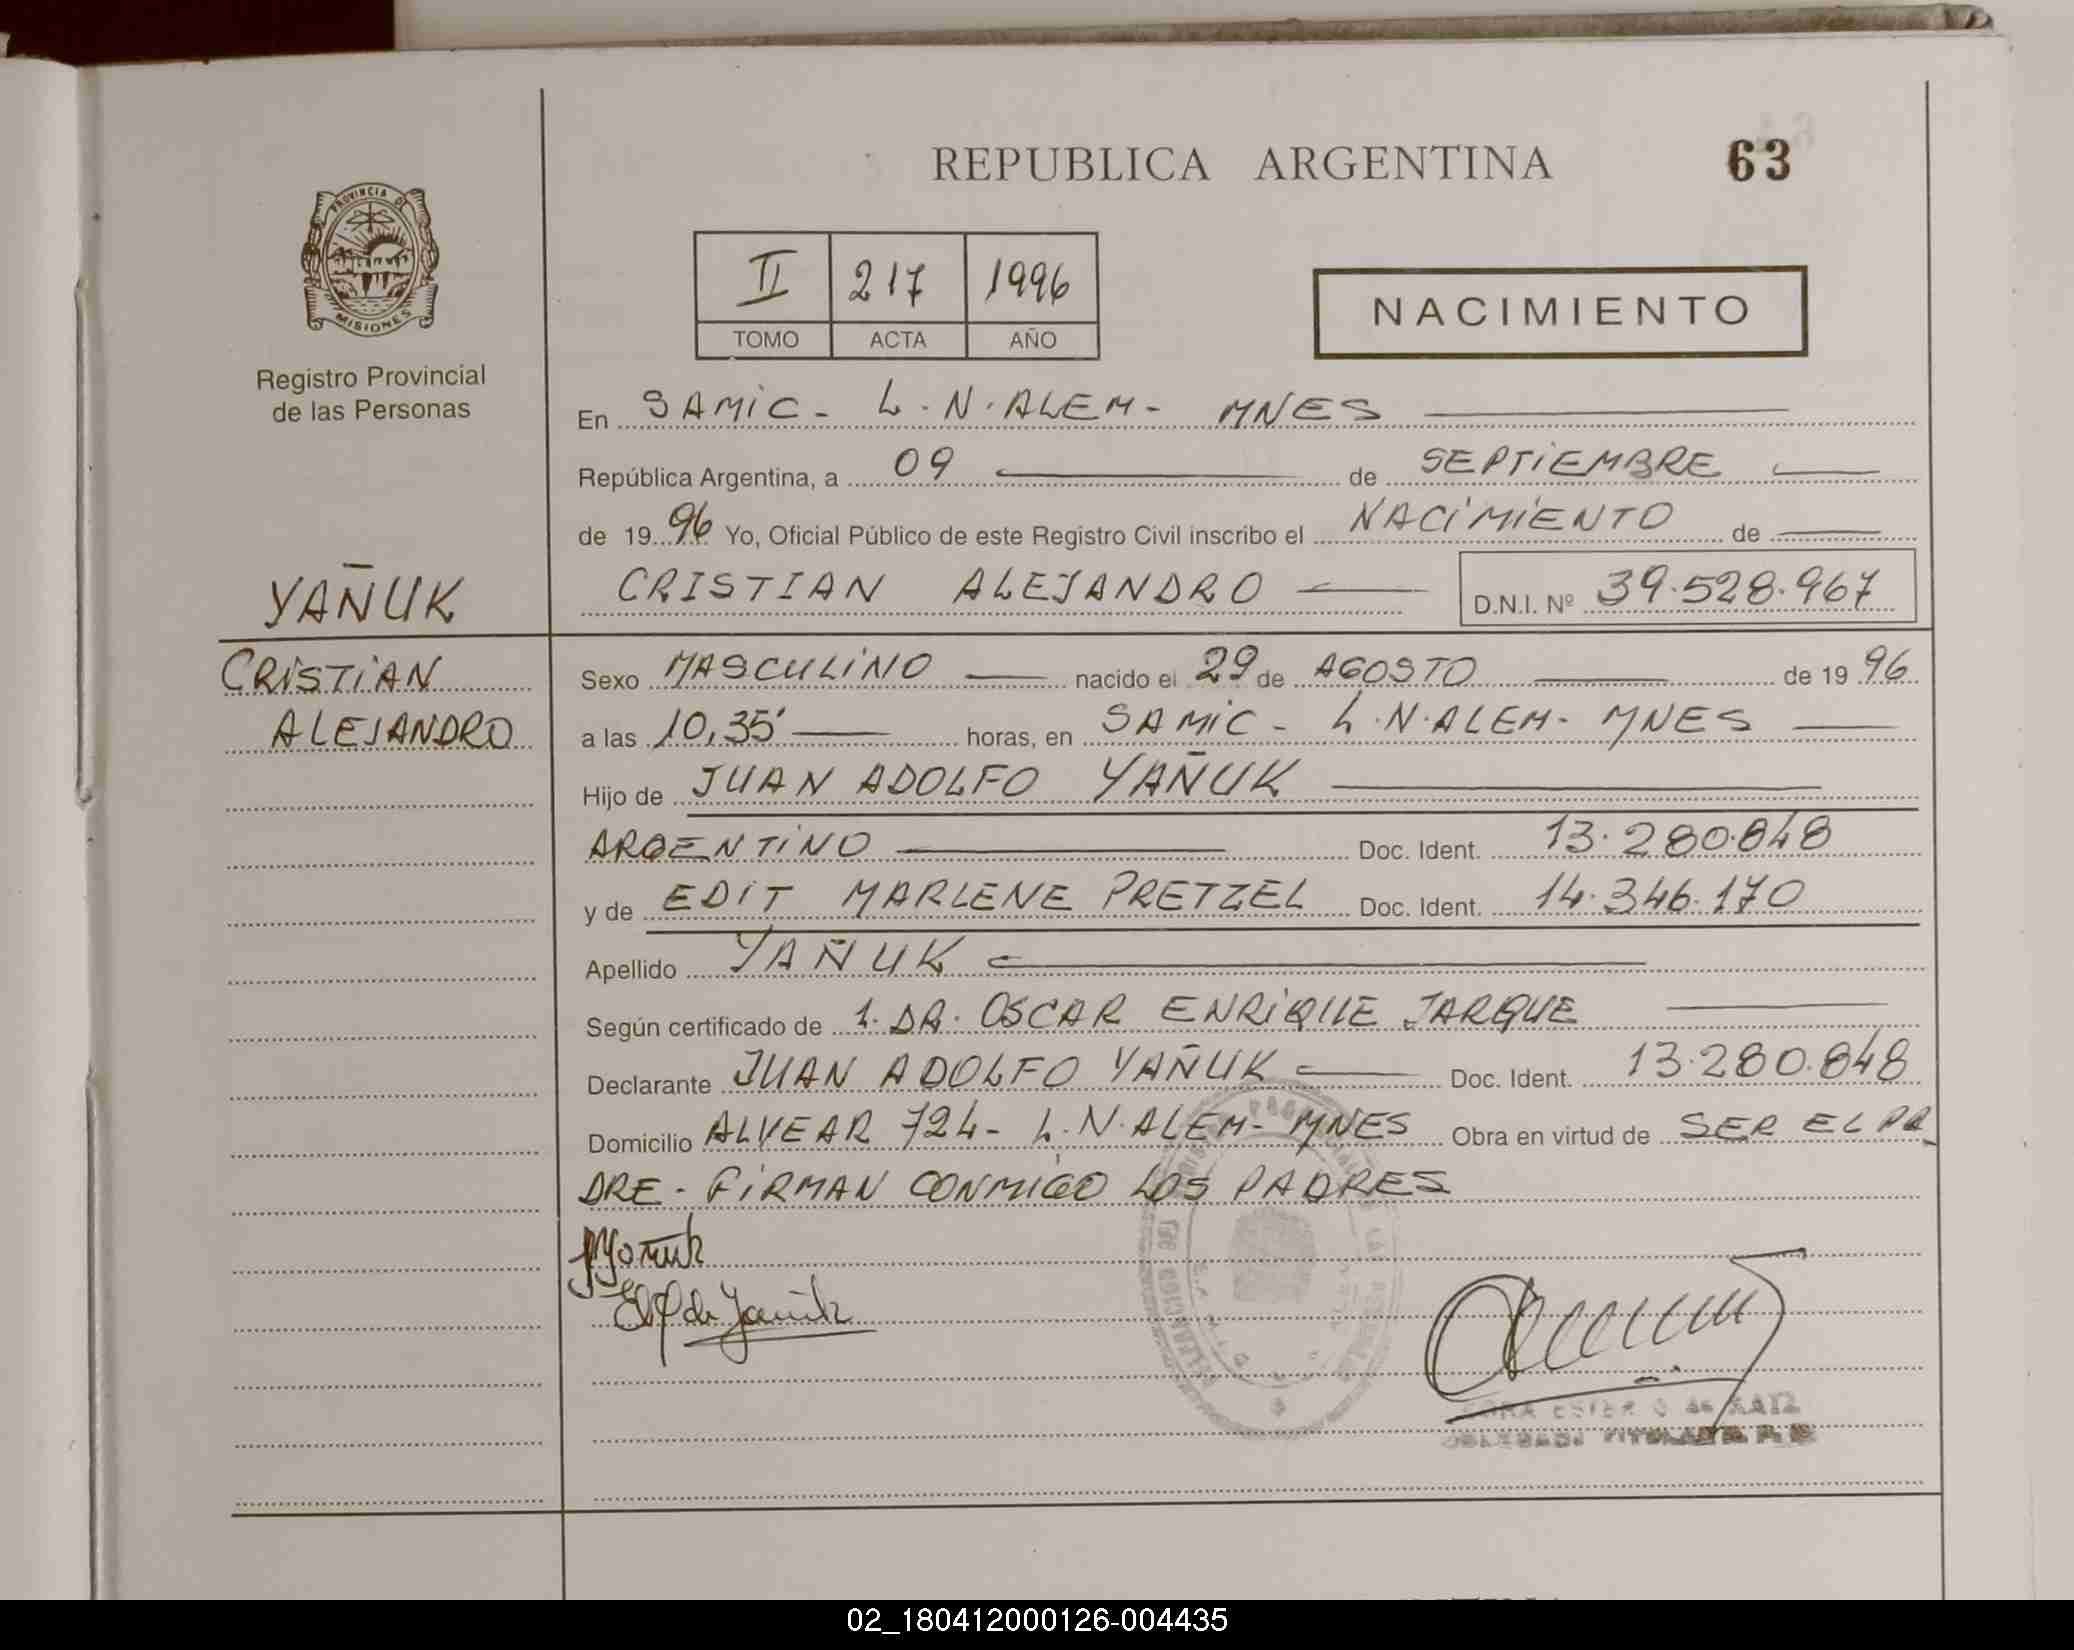 REPUBLICA ARGENTINA
63
PROVINCIA DE
MISIONES
Registro Provincial
de las Personas
II 217 1996
TOMO ACTA AÑO
NACIMIENTO
En SAMIC - L.N.ALEM - MNES
República Argentina, a 09 de SEPTIEMBRE
de 1996 Yo, Oficial Público de este Registro Civil inscribo el NACIMIENTO de
YAÑUK
CRISTIAN ALEJANDRO D.N.I. Nº 39.528.967
CRISTIAN
ALEJANDRO
Sexo MASCULINO nacido el 29 de AGOSTO de 1996
a las 10,35' horas, en SAMIC - L.N.ALEM - MNES
Hijo de JUAN ADOLFO YAÑUK
ARGENTINO Doc. Ident. 13.280.848
y de EDIT MARLENE PRETZEL Doc. Ident. 14.346.170
Apellido YAÑUK
Según certificado de 1. DR. OSCAR ENRIQUE JARQUE
Declarante JUAN ADOLFO YAÑUK Doc. Ident. 13.280.848
Domicilio ALVEAR 724 - L.N.ALEM - MNES Obra en virtud de SER EL PA
DRE - FIRMAN CONMIGO LOS PADRES
02_180412000126-004435